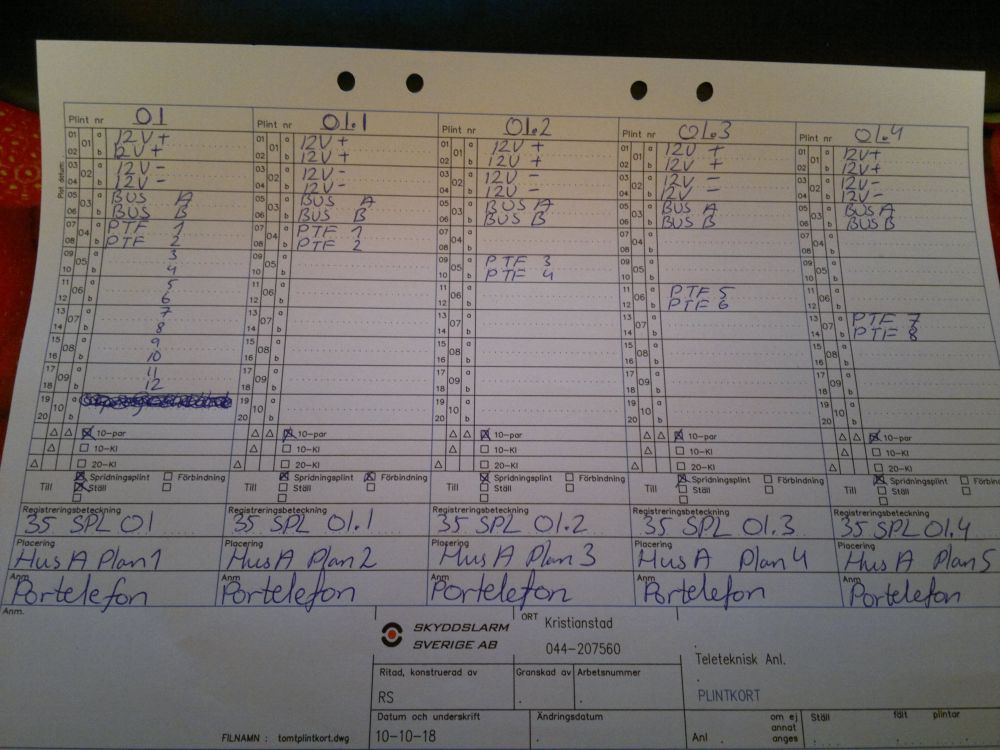 Plint nr 01
Plint nr 01.1
Plint nr 01.2
Plint nr 01.3
Plint nr 01.4
01 01 a 12V+
02 b 12V+
03 02 a 12V-
04 b 12V-
05 03 a BUS A
06 b BUS B
07 04 a PTF 1
08 b PTF 2
09 05 a 3
10 b 4
11 06 a 5
12 b 6
13 07 a 7
14 b 8
15 08 a 9
16 b 10
17 09 a 11
18 b 12
19 10 a
20 b
01 01 a 12V+
02 b 12V+
03 02 a 12V-
04 b 12V-
05 03 a BUS A
06 b BUS B
07 04 a PTF 1
08 b PTF 2
09 05 a
10 b
11 06 a
12 b
13 07 a
14 b
15 08 a
16 b
17 09 a
18 b
19 10 a
20 b
01 01 a 12V +
02 b 12V +
03 02 a 12V -
04 b 12V -
05 03 a BUS A
06 b BUS B
07 04 a
08 b
09 05 a PTF 3
10 b PTF 4
11 06 a
12 b
13 07 a
14 b
15 08 a
16 b
17 09 a
18 b
19 10 a
20 b
01 01 a 12V +
02 b 12V +
03 02 a 12V -
04 b 12V -
05 03 a BUS A
06 b BUS B
07 04 a
08 b
09 05 a
10 b
11 06 a PTF 5
12 b PTF 6
13 07 a
14 b
15 08 a
16 b
17 09 a
18 b
19 10 a
20 b
01 01 a 12V+
02 b 12V+
03 02 a 12V-
04 b 12V-
05 03 a BUS A
06 b BUS B
07 04 a
08 b
09 05 a
10 b
11 06 a
12 b
13 07 a PTF 7
14 b PTF 8
15 08 a
16 b
17 09 a
18 b
19 10 a
20 b
10-par 10-par 10-par 10-par 10-par
10-Kl 10-Kl 10-Kl 10-Kl 10-Kl
20-Kl 20-Kl 20-Kl 20-Kl 20-Kl
Till Spridningsplint Förbindning Till Spridningsplint Förbindning Till Spridningsplint Förbindning Till Spridningsplint Förbindning Till Spridningsplint Förbindn
Ställ Ställ Ställ Ställ Ställ
Registreringsbeteckning Registreringsbeteckning Registreringsbeteckning Registreringsbeteckning Registreringsbeteckning
35 SPL 01 35 SPL 01.1 35 SPL 01.2 35 SPL 01.3 35 SPL 01.4
Placering Placering Placering Placering Placering
Hus A Plan 1 Hus A Plan 2 Hus A Plan 3 Hus A Plan 4 Hus A Plan 5
Anm Anm Anm Anm Anm
Portelefon Portelefon Portelefon Portelefon Portelefon
Anm.
SKYDDSLARM
SVERIGE AB
ORT Kristianstad
044-207560
Teleteknisk Anl.
PLINTKORT
Ritad, konstruerad av Granskad av Arbetsnummer
RS
Datum och underskrift Ändringsdatum
10-10-18
om ej annat anges
Ställ fält plintar
Anl
FILNAMN : tomtplintkort.dwg